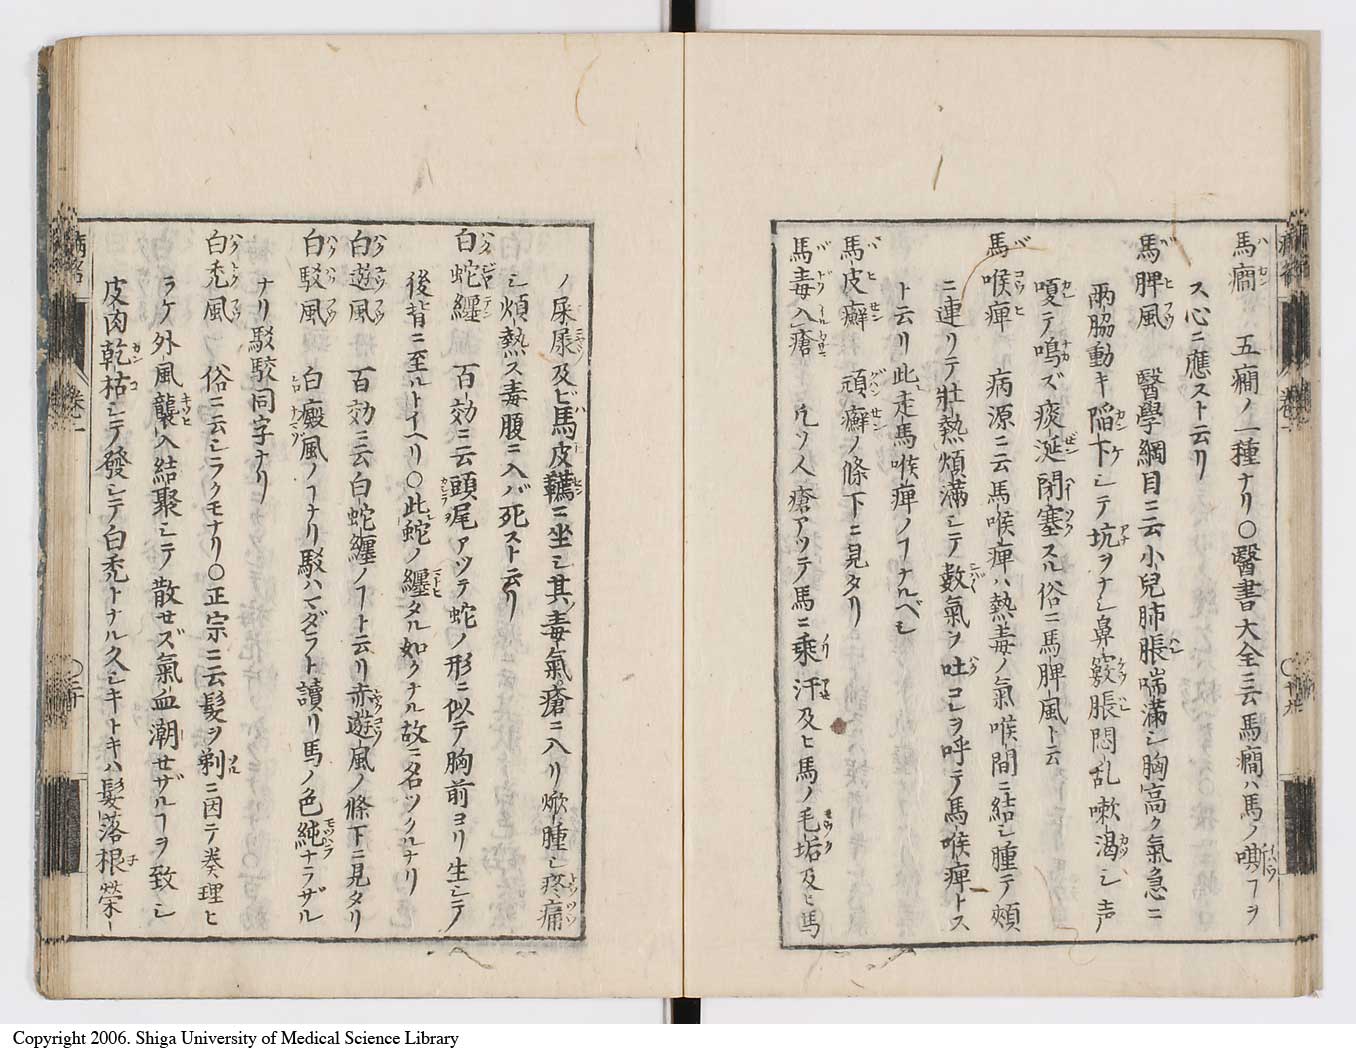 馬癇 五癇ノ一種ナリ〇醫書大全ニ云馬癇ハ馬ノ嘶フヿヲ
ス心ニ應スト云リ
馬脾風 醫學綱目ニ云小兒肺脹喘滿シ胸高ク氣急ニ
兩脇動キ陷下シテ坑ヲナシ鼻竅脹悶乱嗽渇シ声
嗄テ鳴ズ痰涎閉塞スル俗ニ馬脾風ト云
馬喉痺 病源ニ云馬喉痺ハ熱毒ノ氣喉間ニ結シ腫テ頰
ニ連リテ壯熱煩滿シテ數氣ヲ吐コレヲ呼テ馬喉痺トス
ト云リ此走馬喉痺ノヿナルベシ
馬皮癬 頑癬ノ條下ニ見タリ
馬毒入瘡 凡ソ人瘡アツテ馬ニ乘汗及ヒ馬ノ毛垢及ヒ馬
ノ屎尿及ビ馬皮韉ニ坐シ其毒氣瘡ニ入リ焮腫シ疼痛
シ煩熱ス毒腹ニ入バ死スト云リ
白蛇纒 百効ニ云頭尾アツテ蛇ノ形ニ似テ胸前ヨリ生シテ
後背ニ至ルトイヘリ〇此蛇ノ纒タル如クナル故ニ名ツクルナリ
白遊風 百効ニ云白蛇纒ノヿト云リ赤遊風ノ條下ニ見タリ
白駁風 白癜風ノヿナリ駁ハマダラト讀リ馬ノ色純ナラザル
ナリ駁駮同字ナリ
白禿風 俗ニ云シラクモナリ〇正宗ニ云髮ヲ剃ニ因テ湊理ヒ
ラケ外風襲入結聚シテ散セズ氣血潮セザルヿヲ致シ
皮肉乾枯シテ發シテ白禿トナル久シキトキハ髮落根榮
Copyright 2006. Shiga University of Medical Science Library